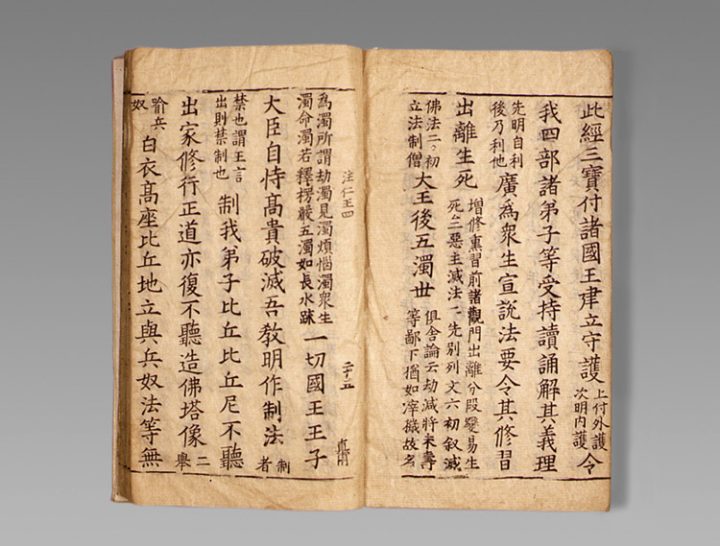 此經三寶付諸國王建立守護上付外護次明内護令
我四部諸弟子等受持讀誦解其義理
先明自利後乃利他廣為衆生宣說法要令其修習
出離生死增修熏習前諸觀門出離分段變易生死
佛法二初立法制僧大王後五濁世
為濁所謂劫濁見濁煩惱濁衆生濁命濁若釋楞嚴五濁如長水疏一切國王王子
注仁王四
二十五
大臣自恃高貴破滅吾教明作制法制者
禁也謂王言出則禁制也制我弟子比丘比丘尼不聽
出家修行正道亦復不聽造佛塔像二舉
喻兵奴白衣高座比丘地立與兵奴法等無